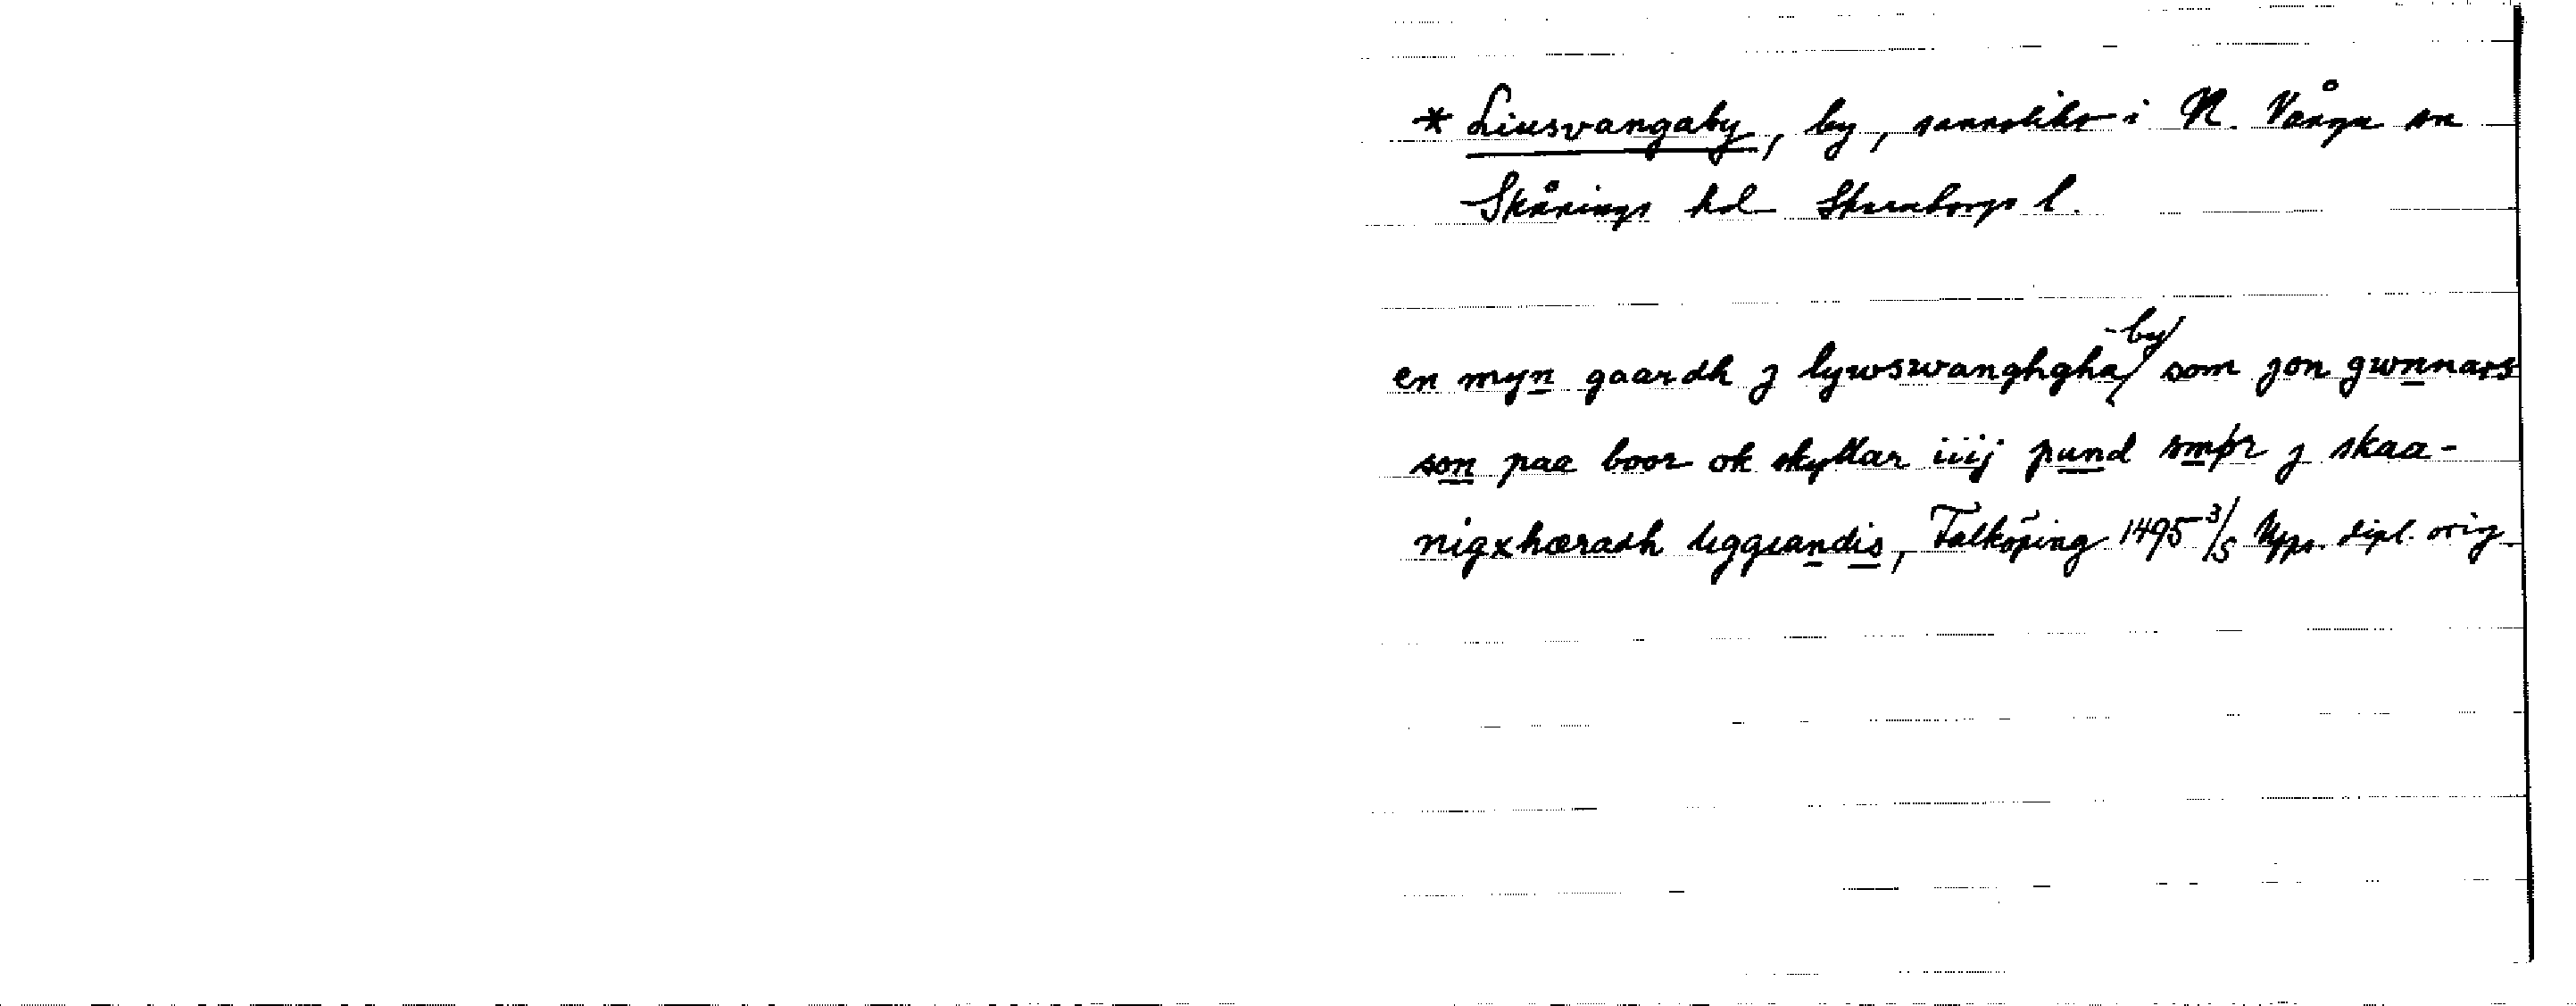 * Liusvangaby, by, sannolikt i N. Vånga sn
Skånings hd Skaraborgs l.
en myn gaardh j lywswanghgha -by som jon gwnnars
son paa boor ok skyllar iiij pund smør j skaa-
nigxhæradh liggiandis, Falköping 1495 3/5 Upps. dipl. orig.